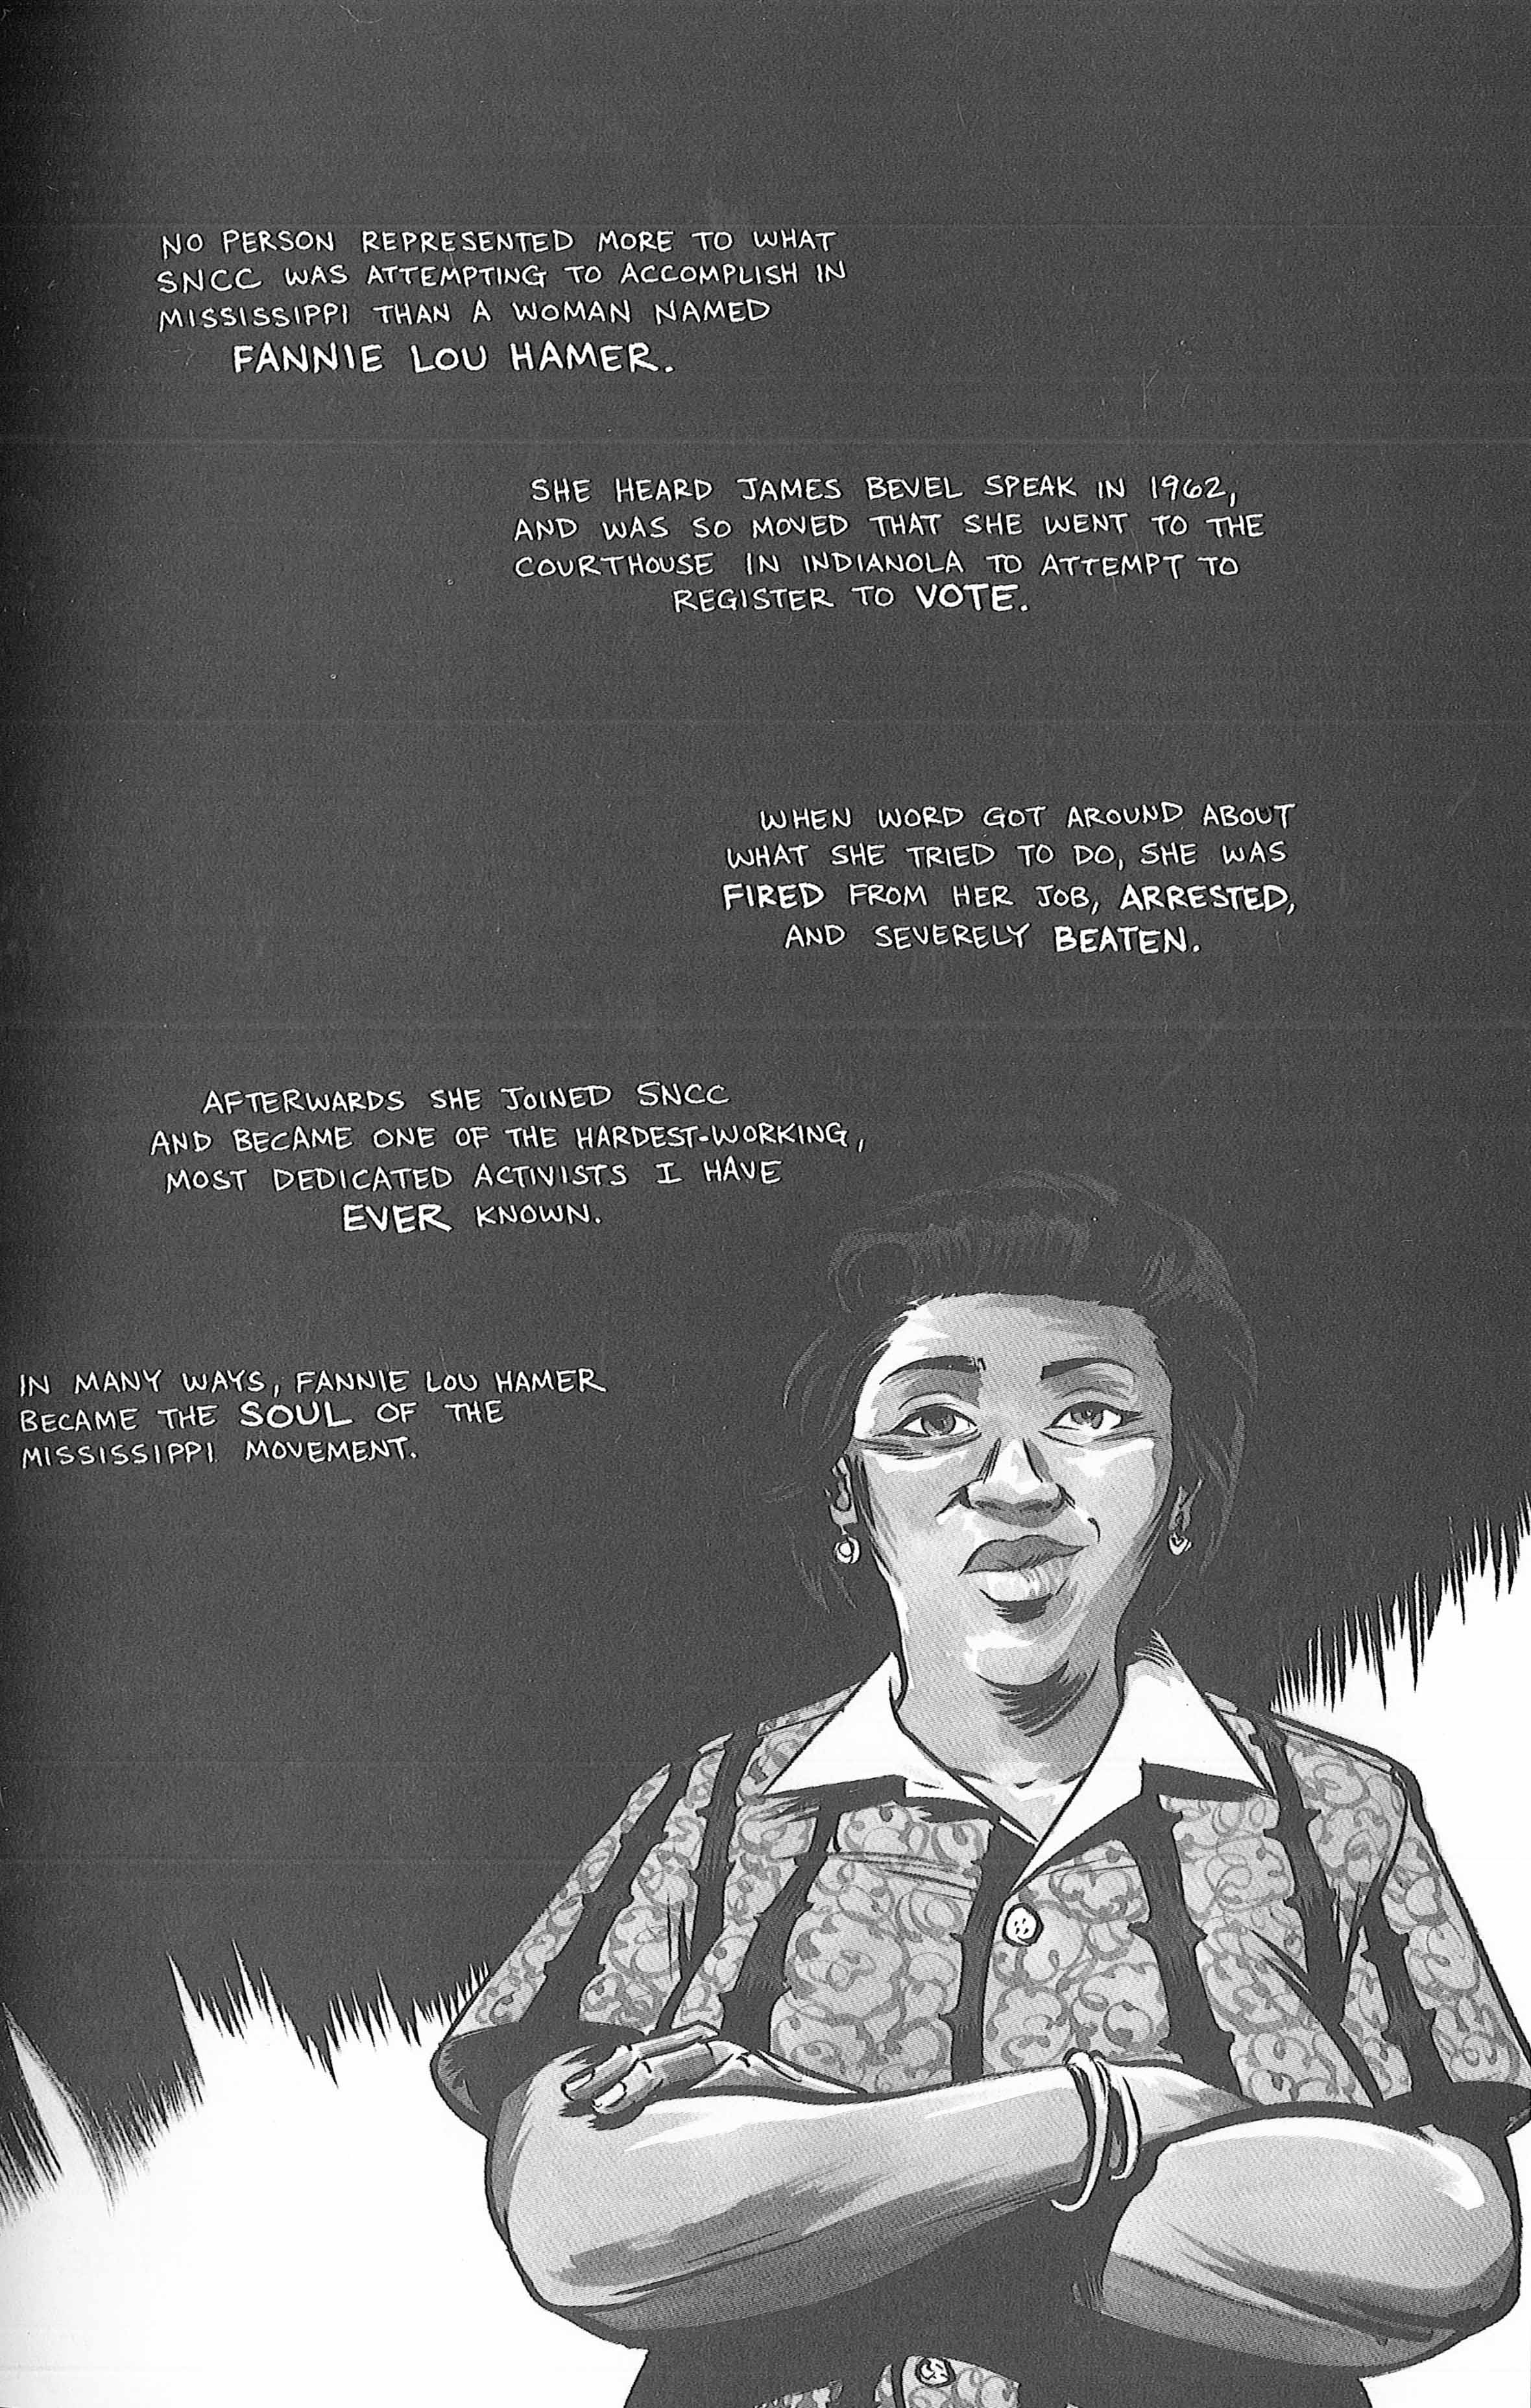 NO PERSON REPRESENTED MORE TO WHAT
SNCC WAS ATTEMPTING TO ACCOMPLISH IN
MISSISSIPPI THAN A WOMAN NAMED
FANNIE LOU HAMER.
SHE HEARD JAMES BEVEL SPEAK IN 1962,
AND WAS SO MOVED THAT SHE WENT TO THE
COURTHOUSE IN INDIANOLA TO ATTEMPT TO
REGISTER TO VOTE.
WHEN WORD GOT AROUND ABOUT
WHAT SHE TRIED TO DO, SHE WAS
FIRED FROM HER JOB, ARRESTED,
AND SEVERELY BEATEN.
AFTERWARDS SHE JOINED SNCC
AND BECAME ONE OF THE HARDEST-WORKING,
MOST DEDICATED ACTIVISTS I HAVE
EVER KNOWN.
IN MANY WAYS, FANNIE LOU HAMER
BECAME THE SOUL OF THE
MISSISSIPPI MOVEMENT.